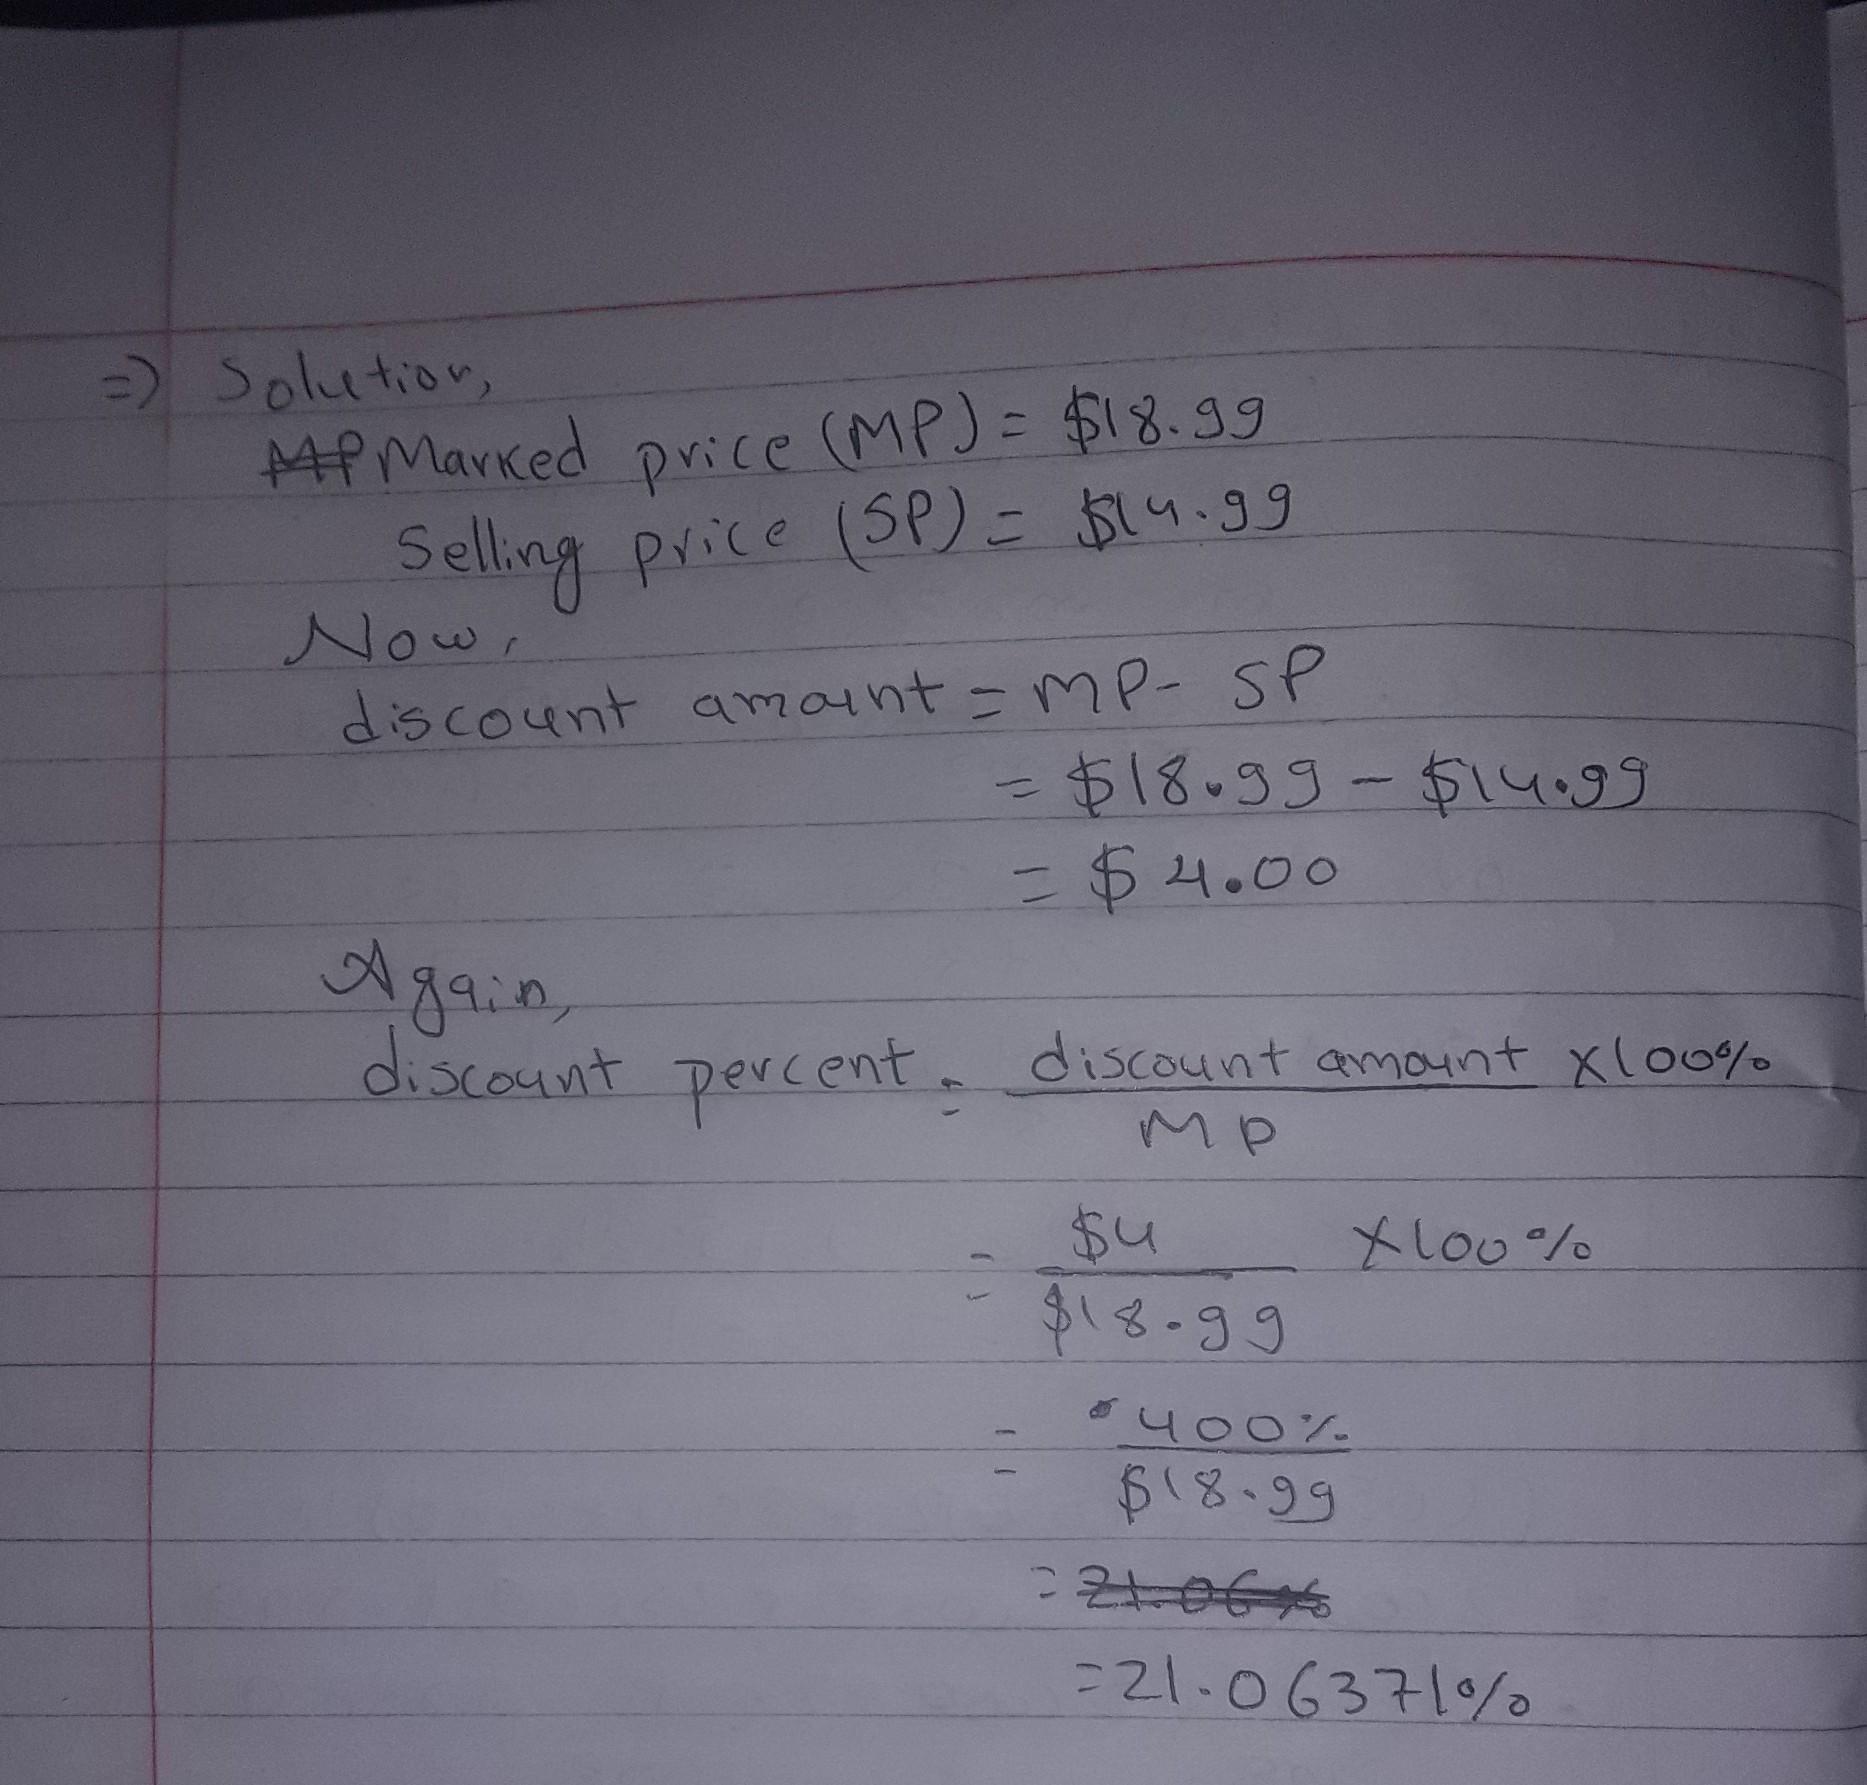 =) Solution,
MP Marked price (MP) = $18.99
Selling price (SP) = $14.99
Now,
discount amount = MP - SP
= $18.99 - $14.99
= $4.00
Again,
discount percent = discount amount x100%
MP
= $4 x100%
$18.99
= 400%
$18.99
= 21.06%
= 21.06371%